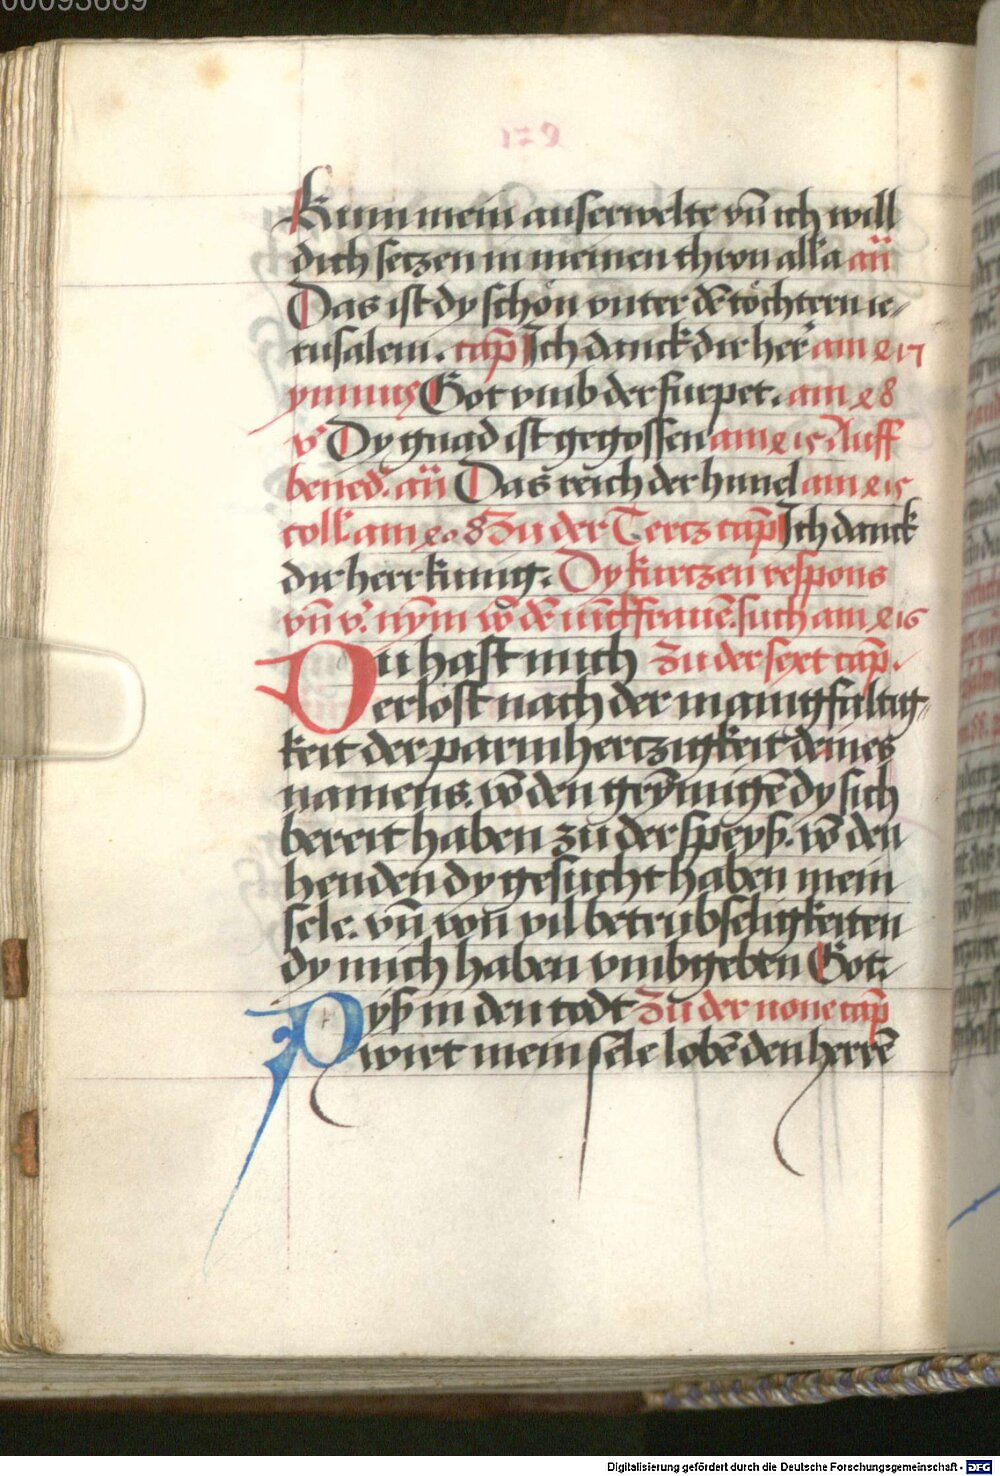 00093689
179
Kum mein auserwelte vn̄ ich will
dich setzen in meinen thron alla an̄
Das ist dy schön vnter dē töchtern ie-
rusalem. cap̄ Ich danck dir her am 217
ymnus Got vmb der fur pet. am 28
v̄ Dy gnad ist gegossen am 215 Auff
bened. an̄ Das reich der himel am 215
coll am 208 Zu der Tertz cap̄ Ich danck
dir herr kunig. Dy kurtzen respons
vn̄ v̄. nym vō dē iunckfrauē. such am 216
Du hast mich Zu der sext cap̄.
erlöst nach der manigfaltig-
keit der parmhertzigkeit deines
namens. vō den grymigē dy sich
bereit haben zu der speyß. vō den
henden dy gesucht haben mein
sele. vn̄ von vil betrubseligkeiten
dy mich haben vmbgeben Got.
Pyß in den todt Zu der none cap̄
wirt mein sele lobē den herrē
Digitalisierung gefördert durch die Deutsche Forschungsgemeinschaft - DFG